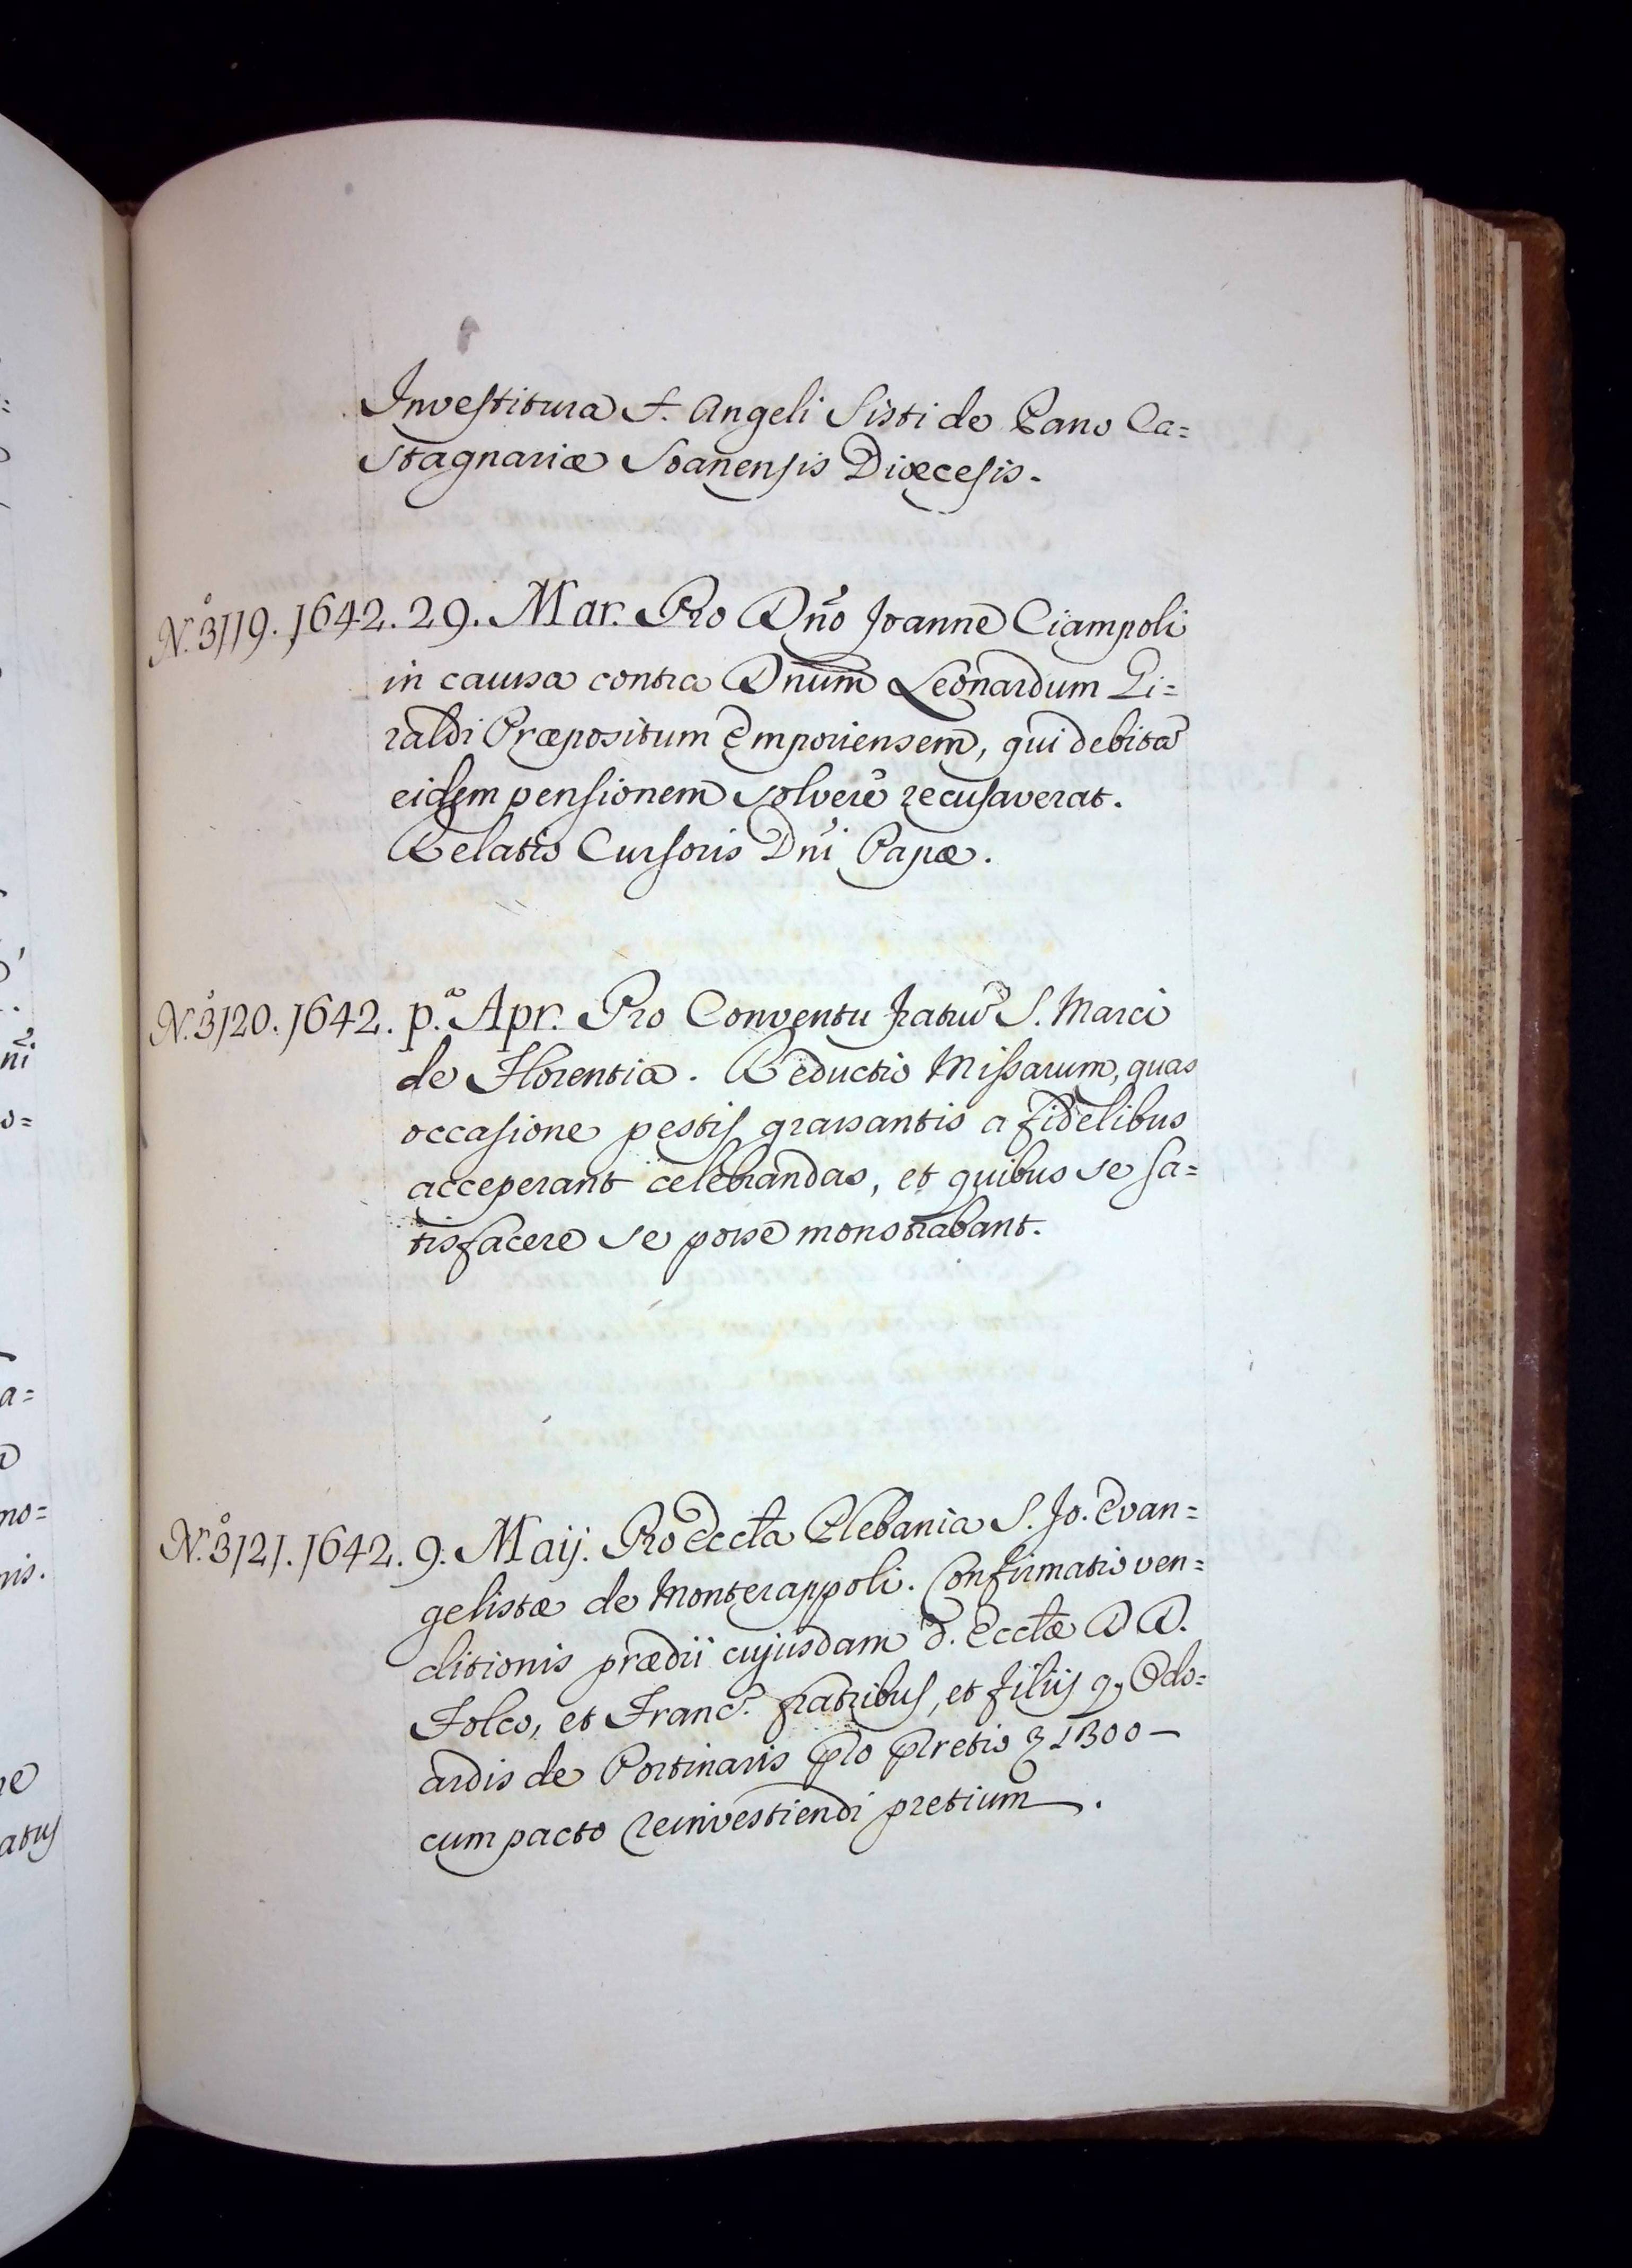 Investitura S. Angeli Sisti de Pano Ca=
stagnariæ Soanensis Diœcesis.
N.º 3119. 1642. 29. Mar. Pro Dño Joanne Ciampoli
in causa contra Dnum Leonardum Gi=
raldi Præpositum Emporiensem, qui debita
eidem pensionem solvere recusaverat.
Relatio Cursoris Dñi Papæ.
N.º 3120. 1642. p.ª Apr. Pro Conventu fratrũ S. Marci
de Florentia. Reductio Missarum, quas
occasione pestis grassantis a fidelibus
acceperant celebrandas, et quibus se sa=
tisfacere se posse monstrabant.
N.º 3121. 1642. 9. Maij. Pro Eccta Plebania S. Jo. Evan=
gelistæ de Monterappoli. Confirmatio ven=
ditionis prædii cujusdam d. Ecctæ DD.
Folco, et Franc.º fratribus, et filiis q. Odo=
ardis de Portinaris pro pretio 1300 —
cum pacto reinvestiendi pretium.
ñi
o=
a=
mo=
nis.
re
atus